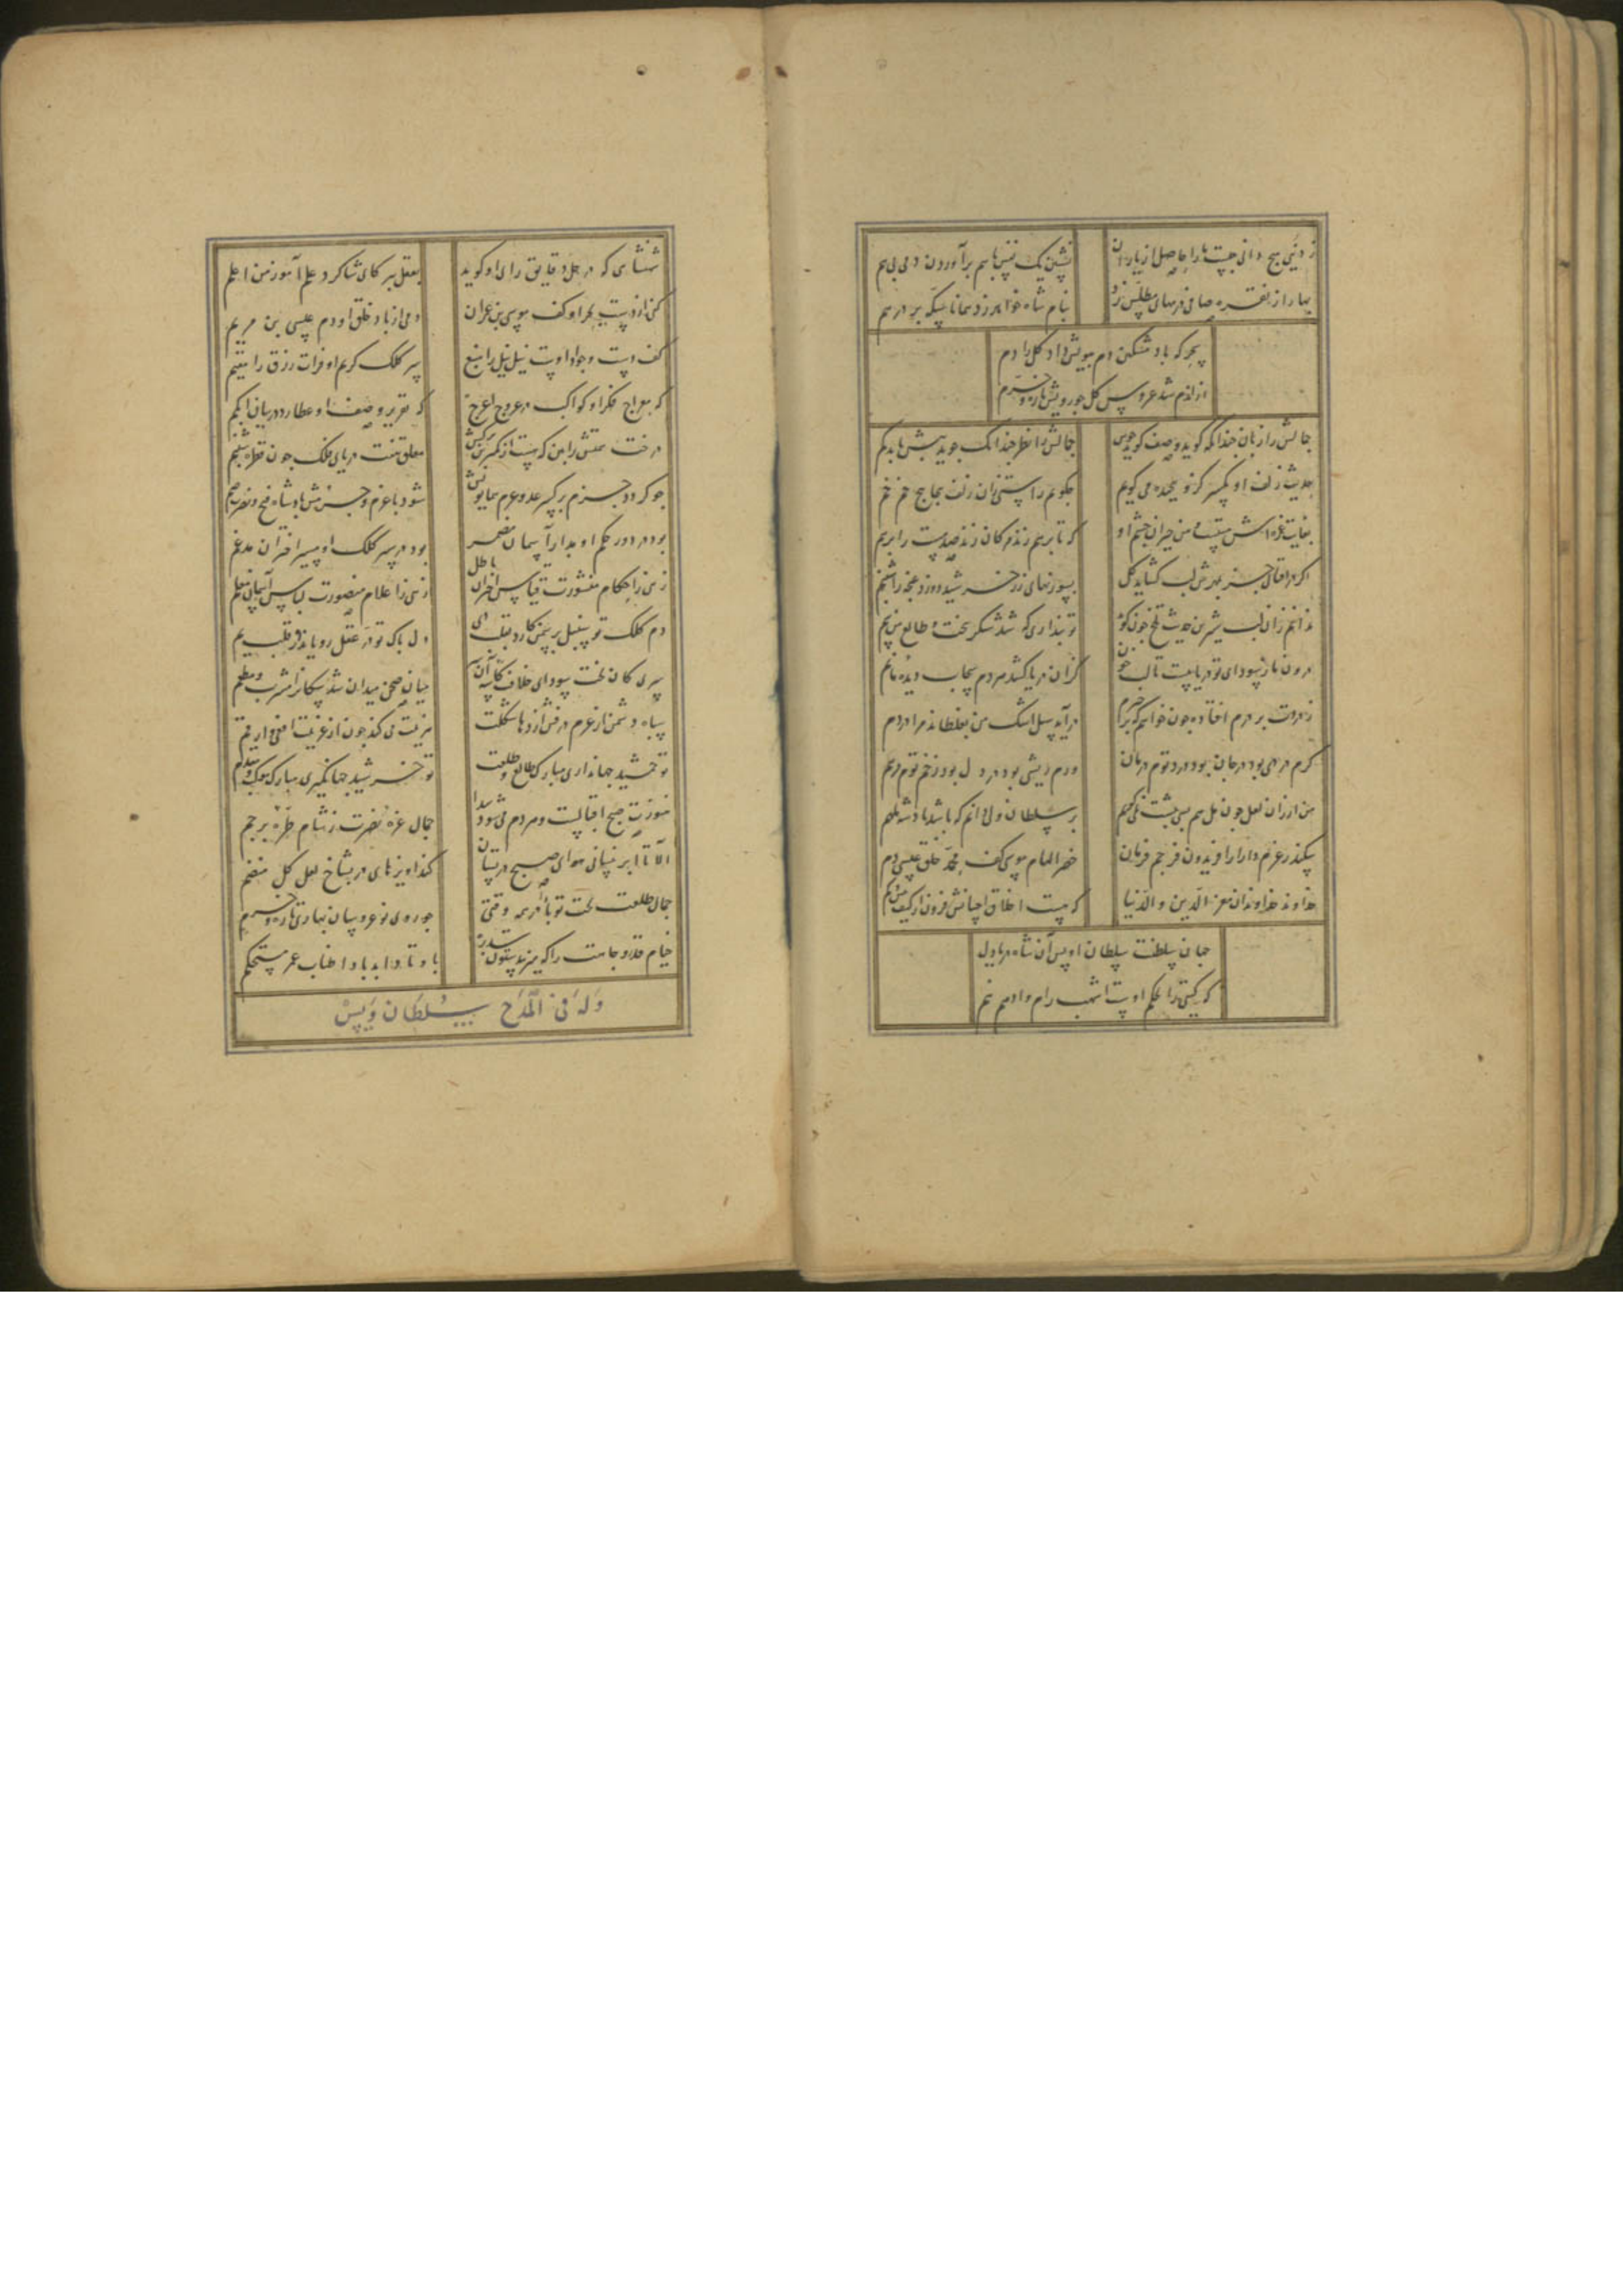 ز دنیی هیچ دانی چیست ما را حاصل از یاران
نشین یک نفس با هم برآوردن دمی بی هم
بهار از نقره صافی درمهای مطلس زد
بنام شاه خواهد زد همانا سکه بر درهم
سحر که باد مشکین دم ببویش داد کل را دم
از ان دم شد عروس کل جو رویش تازه و خرم
جمالش را زبان جندانکه کوید وصف کوید
جمالش را نظر جندانک جوید
حدیث زلف او یکسر کر و بجیده می کویم
جکویم راستی زان زلف بیجابیج خم خم
بغایت غمزه اش مستست و من حیران جشم او
که تا بر هم زند مژکان زند صد مست را بر هم
اکر در آفتاب حسن مهرش لب کشاید کل
بسوزنهای زر خرشید دوزد غنجه را
ندانم زان لب شیرین حدیث تلخ جون کوید
تو بنداری که شد شکر ببخت و طالع من سم
درون ما ز سودای تو دریاییست تا لب خون
کزان دریا کشد مردم سحاب دیده ما نم
ز مردت بر درم افتاده جون خواهم
درآید سیل اشک من بغلطاند مرا در دم
کرم دردی بود در جان بود درد توم درمان
ورم ریشی بود در دل بود زخم توم مرهم
من ار زان لعل جون مل هم بسی
بر سلطان ولی دانم که باشد بادشه ملهم
سکندر عزم دارا را فریدون فر جم فرمان
خضر الهام موسی کف محمد خلق عیسی دم
خداوند خداوندان معز الدین و الدنیا
که هست اخلاق احسانش فزون از کیف و
جهان سلطنت سلطان اویس آن شاه دریادل
که کیتی را بحکم اوست اشهب رام و ادهم هم
شهنشاهی که در حل دقایق رای او کوید
بعقل بیر کای شاکرد علم آموز من اعلم
کفی از دست بحر او کف موسی بن عمران
دمی از باد خلق او دم عیسی بن مریم
کف دست جواد اوست نیل نیل را منبع
سر کلک کریم او فرات رزق را مقسم
که معراج فکر او کواکب در عروج اعرج
که تقریر وصف او عطارد در بیان ابکم
درخت همتش را بین که هست از کمترین
معلق هفت دریای فلک جون قطره شبنم
جو کردد حزم برکیر عدو عزم همایونش
شود با عزم و حزمش باد شاه فتح و نصرت ضم
بود در دور حکم او مدار آسمان مضمر
بود در سر کلک او مسیر اختران مدغم
زهی ز احکام منشورت قیاس اختران باطل
زهی ز اعلام منصورت لباس آسمان معلم
دم کلک تو سنبل بر سمن کارد
دل باک تو در عقل رویاند
سری کان تخت سودای خلاف
میان صحن میدان شد سکانرا مشرب و مطعم
سباه دشمن از عزم درفش اژدها شکلت
هزیمت می کند جون از عزیمت افعی ارقم
تو جمشید جهانداری مبارک طالع و طلعت
تو خرشید جهانکیری مبارک موکب و مقدم
ز مهرت صبح اقبالست و هر دم می شود بیدا
جمال غره نصرت ز شام طره برجم
الا تا ابر نیسانی هوای صبح در بستان
کند آویزهای در بشاخ لعل کل منضم
جمال طلعت بخت تو بادا در همه وقتی
جو روی نوعروسان بهاری تازه و خرم
خیام قدر و جاهت را که میزند ستون سدره
باوتاد ابد بادا طناب عمر مستحکم
وله فی المدح سلطان ویس